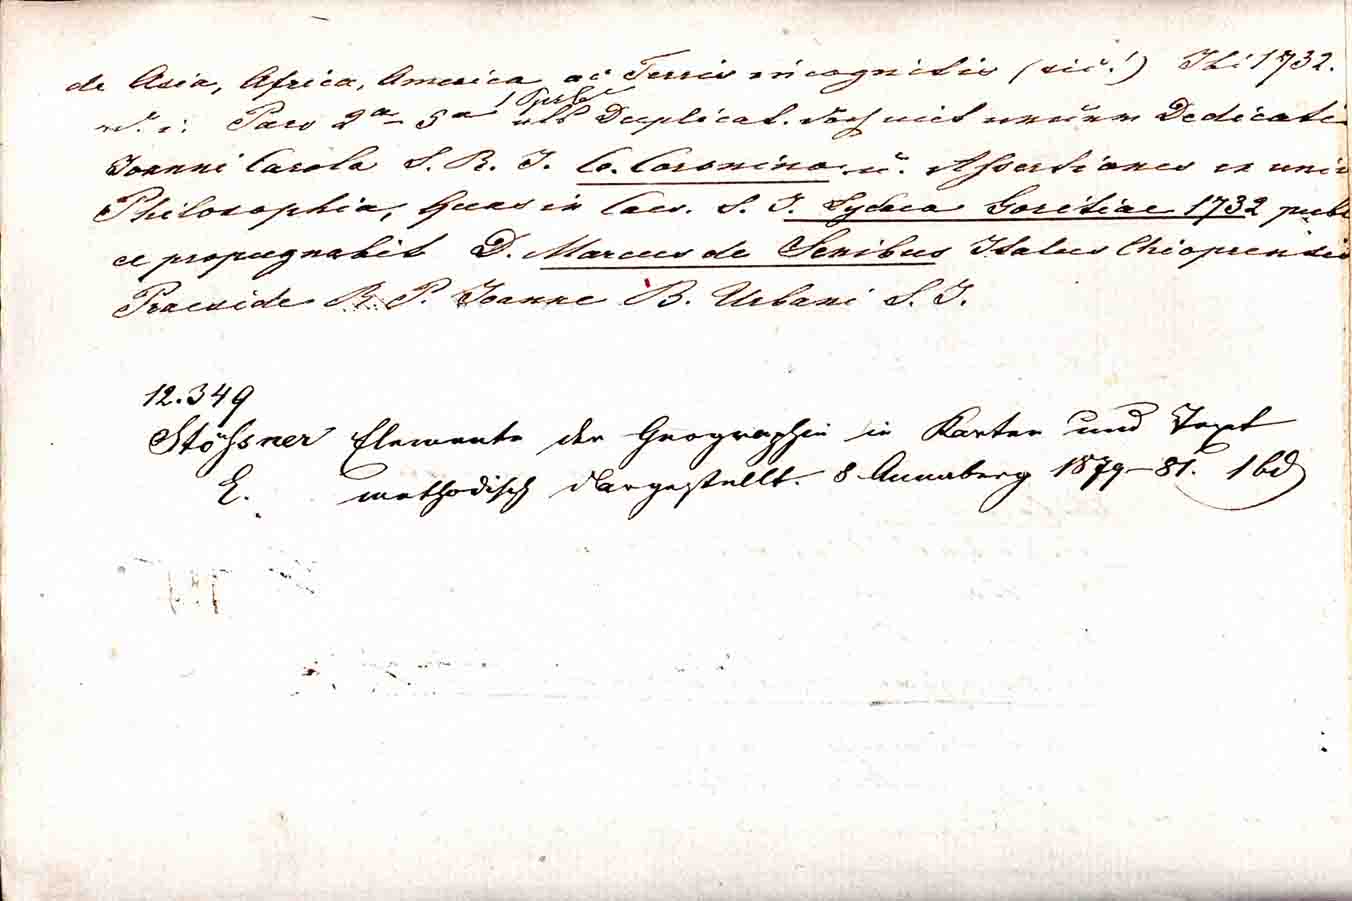 de Asia, Africa, America ac Terris incognitis (sic!) Ibi 1732.
Pars 2a – 5a als Duplicat. doch mit Dedicati
Joanni Carolo S. R. I. Co. Coronino u. Assertiones ex univ
Philosophia, quas in Caes. S. J. Lycaeo Goritiae 1732 publ
ce propugnabit D. Marcus de Senibus Italus Chioprensis
Praeside R. P. Joanne B. Urbani S. J.
12.349
Stößner Elemente der Geographie in Karten und Text
E. methodisch dargestellt. 8 Annaberg 1879–81. 1 bd